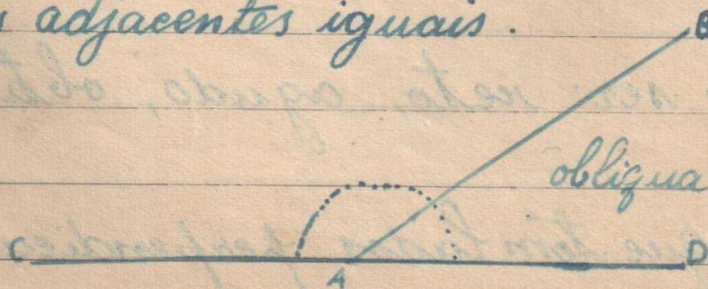 adjacentes iguais.
B
obliqua
C
D
A